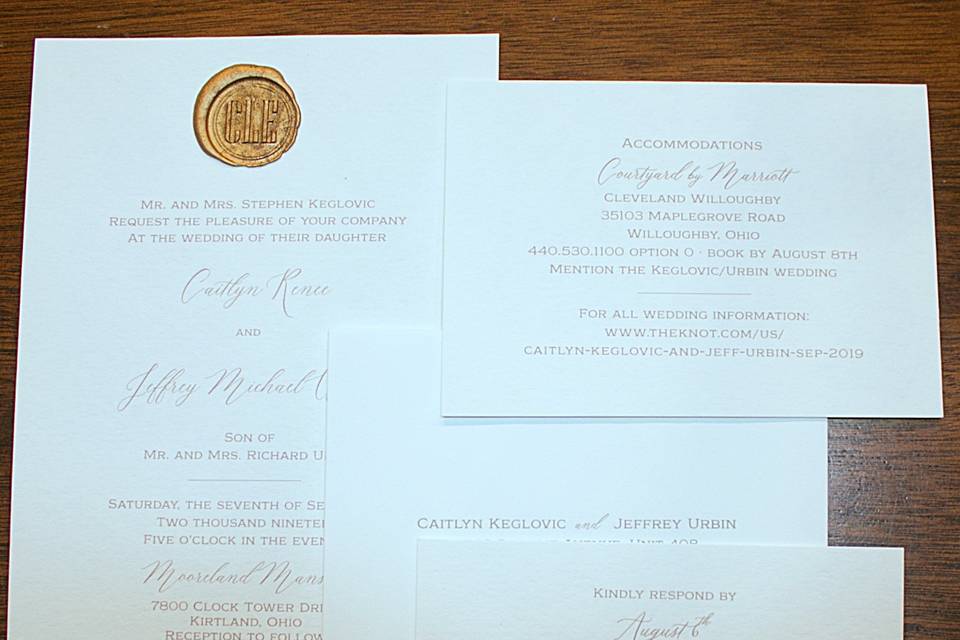 CLE
Mr. and Mrs. Stephen Keglovic
Request the pleasure of your company
At the wedding of their daughter
Caitlyn Renee
and
Jeffrey Michael
Son of
Mr. and Mrs. Richard U
Saturday, the seventh of Se
Two thousand ninete
Five o'clock in the even
Mooreland Mans
7800 Clock Tower Dri
Kirtland, Ohio
Reception to follow
Accommodations
Courtyard by Marriott
Cleveland Willoughby
35103 Maplegrove Road
Willoughby, Ohio
440.530.1100 option 0 · book by August 8th
Mention the Keglovic/Urbin wedding
For all wedding information:
www.theknot.com/us/
caitlyn-keglovic-and-jeff-urbin-sep-2019
Caitlyn Keglovic and Jeffrey Urbin
Avenue, Unit 408
Kindly respond by
August 6th